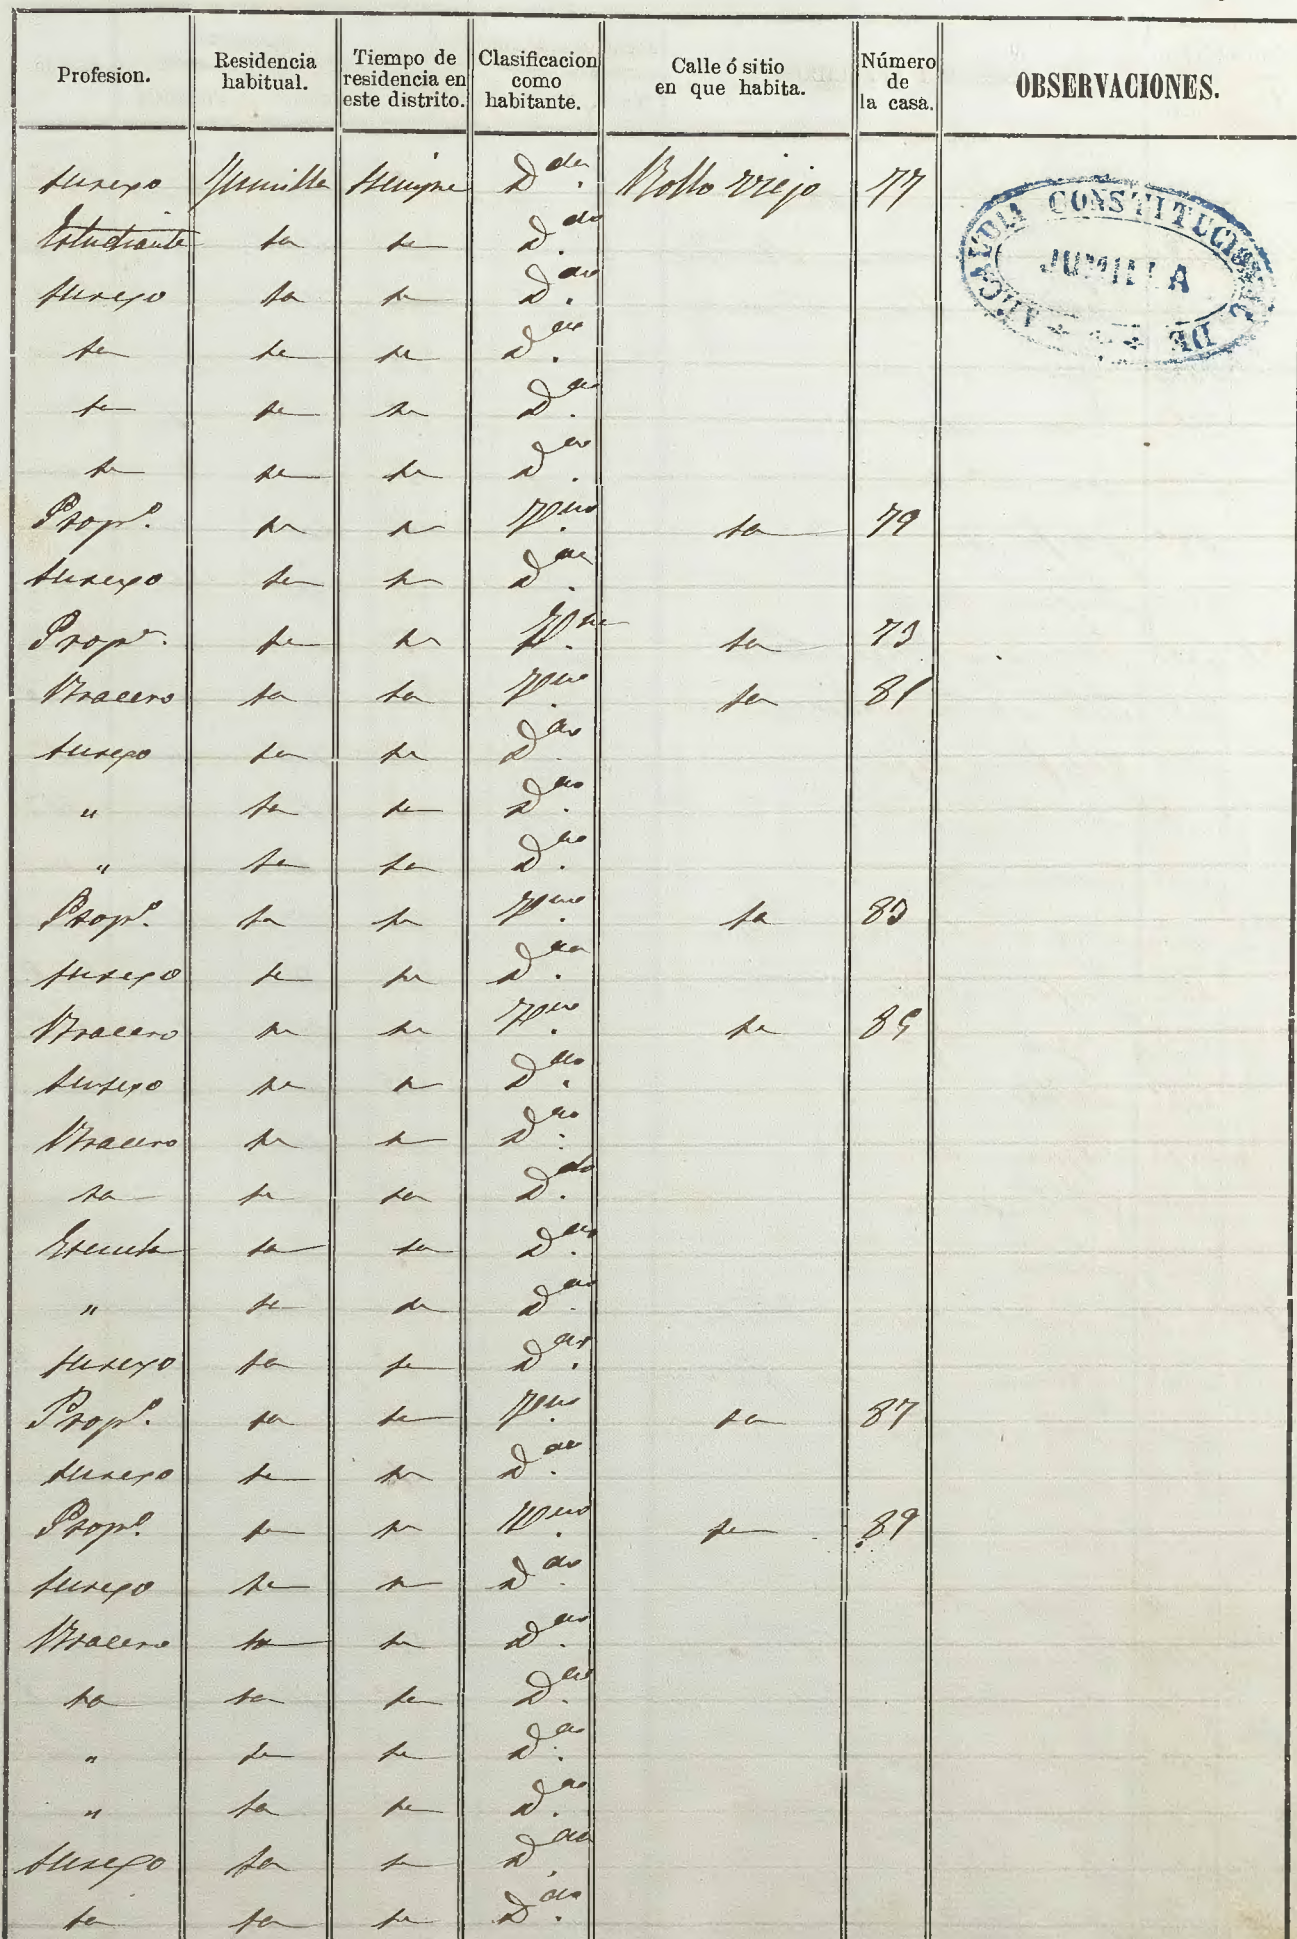 Profesion. Residencia habitual. Tiempo de residencia en este distrito. Clasificacion como habitante. Calle ó sitio en que habita. Número de la casa. OBSERVACIONES.
su sexo Jumilla Siempre D.do Rollo viejo 77
Estudiante id id D.do
su sexo id id D.do
id id id D.do
id id id D.do
id id id D.do
Prop.º id id V.no id 79
su sexo id id D.do
Prop.º id id V.no id 73
Bracero id id V.no id 81
su sexo id id D.do
" id id D.do
" id id D.do
Prop.º id id V.no id 83
su sexo id id D.do
Bracero id id V.no id 85
su sexo id id D.do
Bracero id id D.do
id id id D.do
Escuela id id D.do
" id id D.do
su sexo id id D.do
Prop.º id id V.no id 87
su sexo id id D.do
Prop.º id id V.no id 89
su sexo id id D.do
Bracero id id D.do
id id id D.do
" id id D.do
" id id D.do
su sexo id id D.do
id id id D.do
ALCALDIA CONSTITUCIONAL DE
JUMILLA